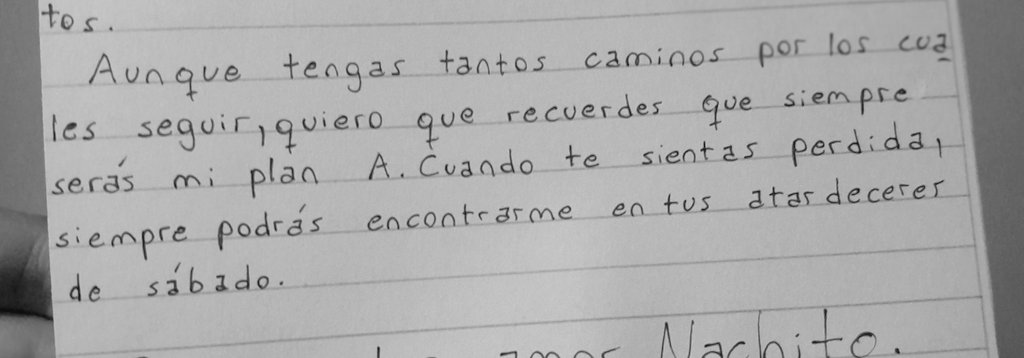 tos.
Aunque tengas tantos caminos por los cua
les seguir, quiero que recuerdes que siempre
serás mi plan A. Cuando te sientas perdida,
siempre podrás encontrarme en tus atardeceres
de sábado.
amor Nachito.